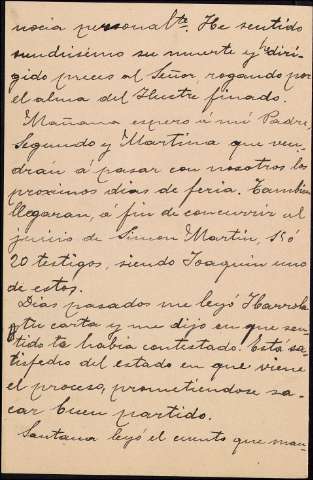 nocia personalte. He sentido
muchísimo su muerte y he diri-
gido preces al Señor, rogando por
el alma del Ilustre finado.
Mañana espero á mi Padre,
Segundo y Martina que ven-
drán á pasar con nosotros los
proximos dias de feria. Tambien
llegaran, á fin de concurrir al
juicio de Simon Martin, 15 ó
20 testigos, siendo Joaquin uno
de estos.
Dias pasados me leyó Ibarrola
tu carta y me dijo en que sen-
tido te habia contestado. Está sa-
tisfecho del estado en que viene
el proceso, prometiendose sa-
car buen partido.
Santana leyó el cuento que man-